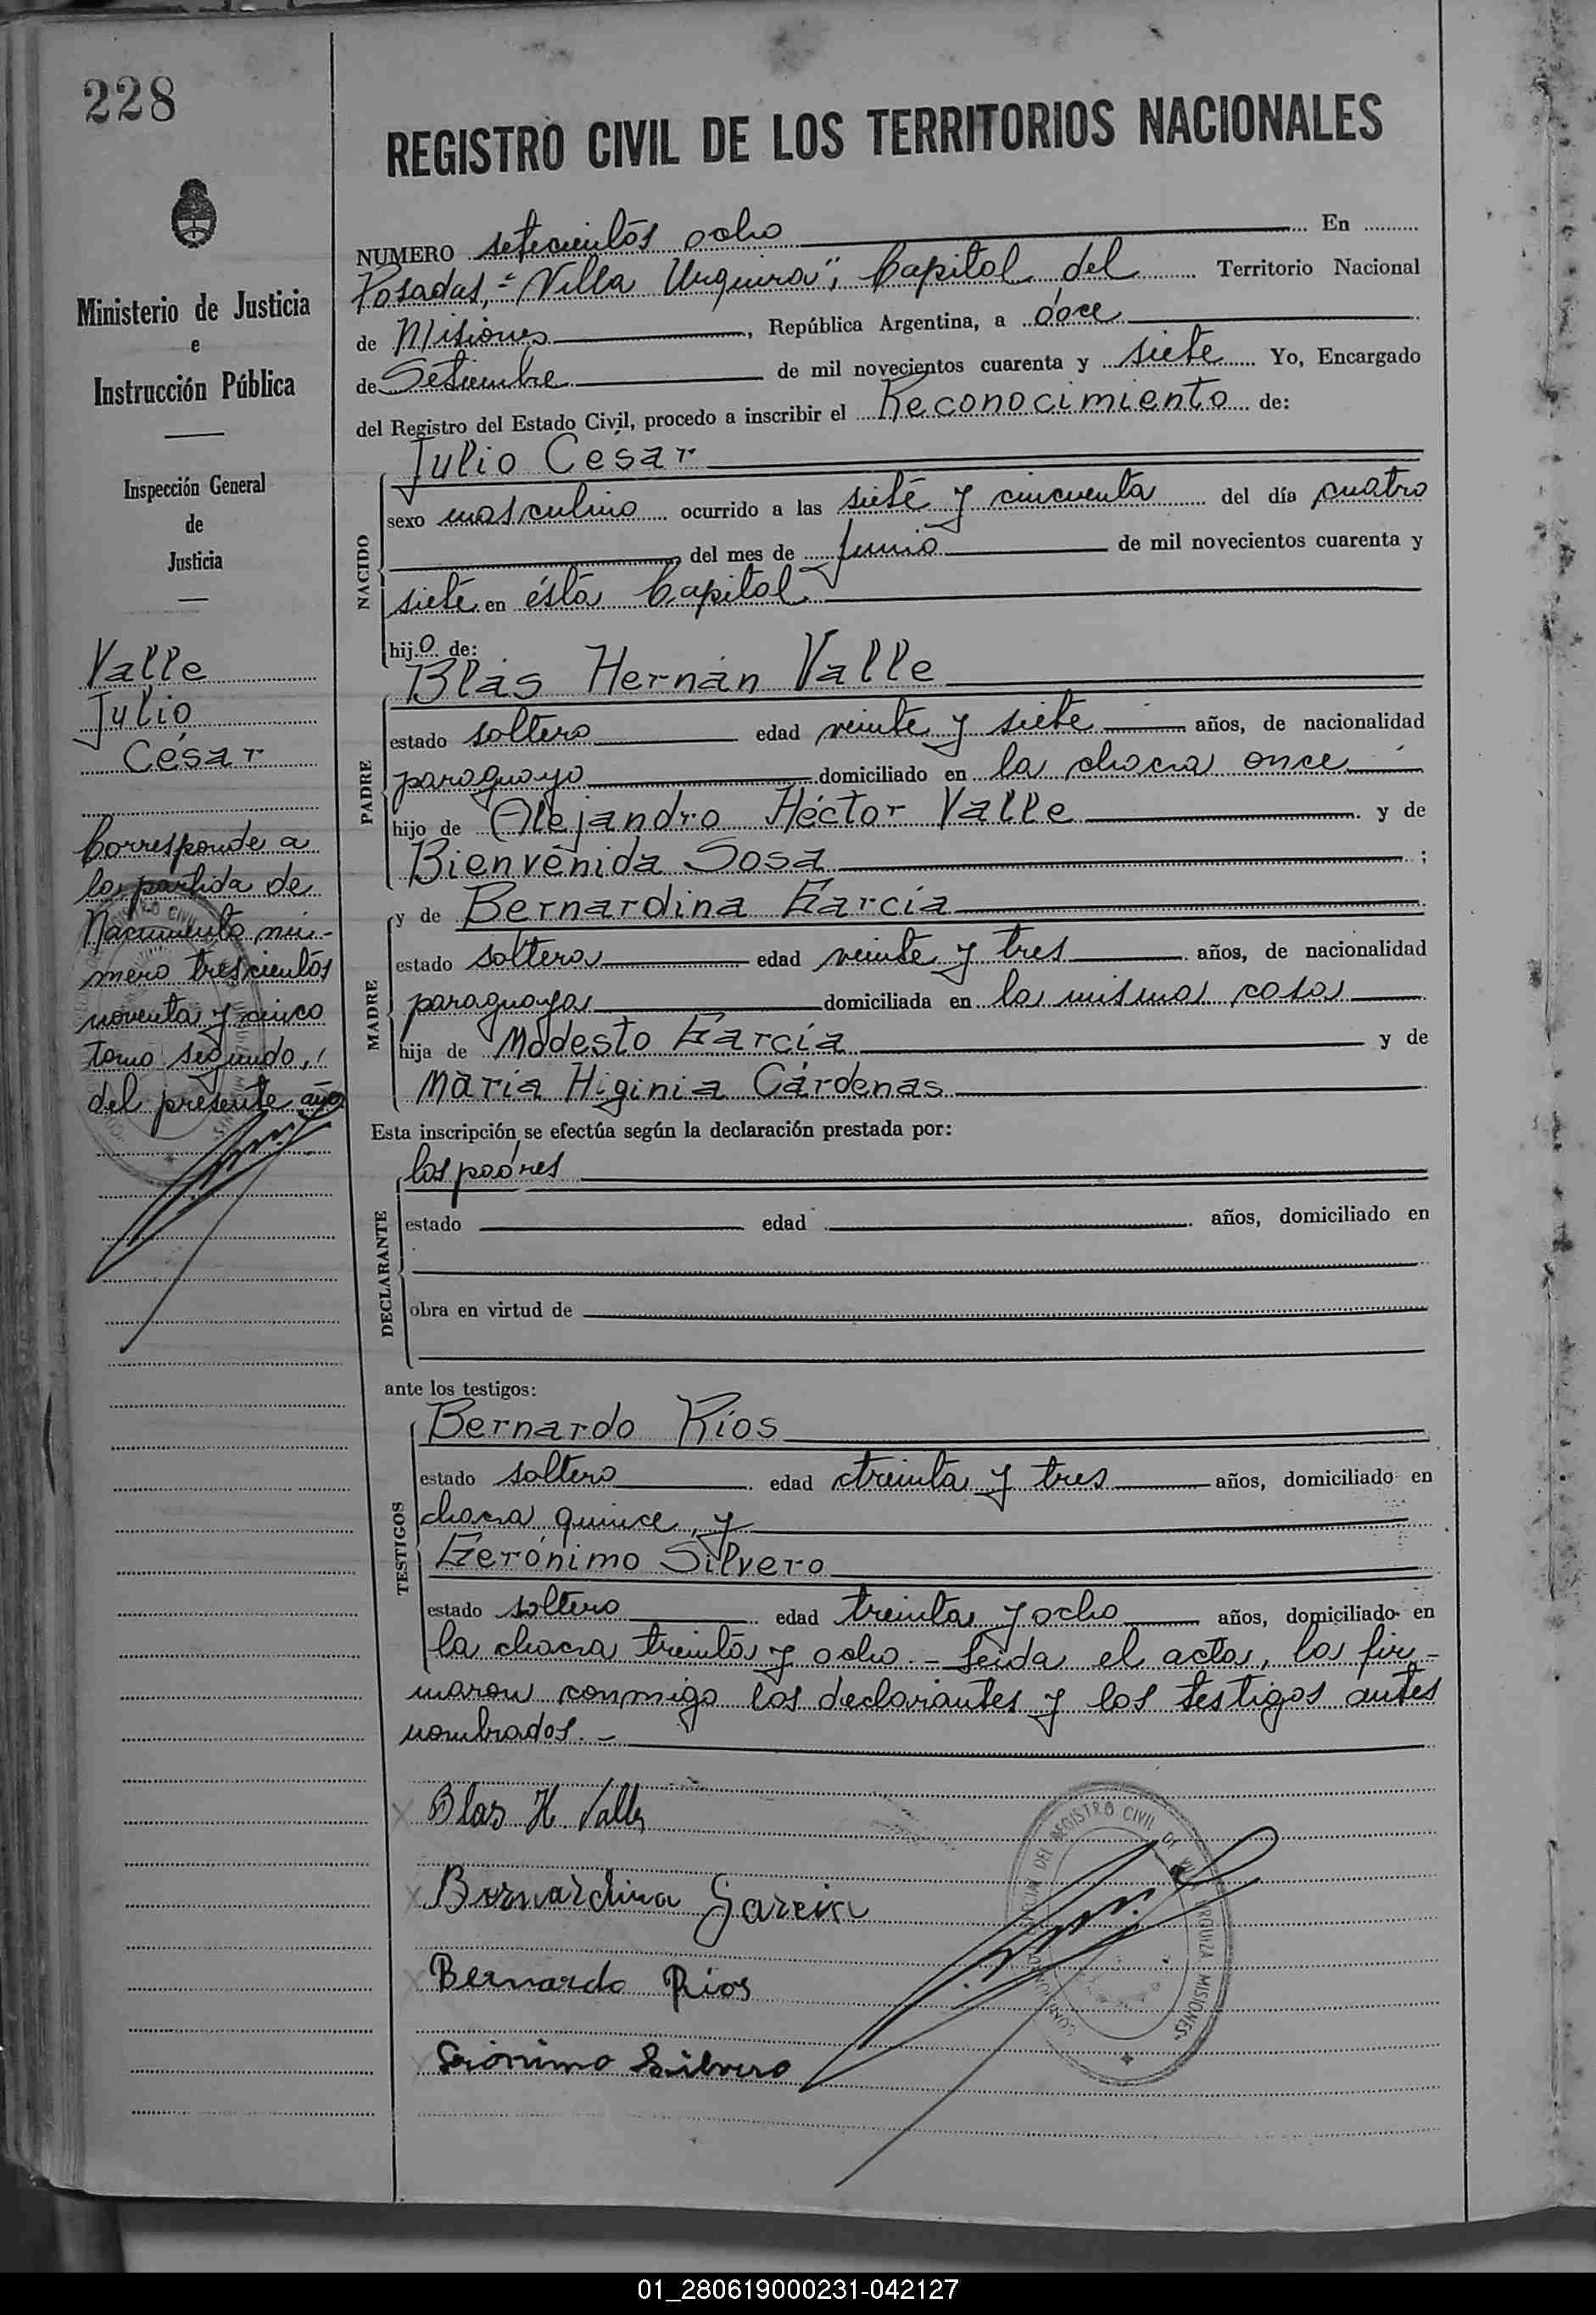 228
REGISTRO CIVIL DE LOS TERRITORIOS NACIONALES
Ministerio de Justicia
e
Instrucción Pública
Inspección General
de
Justicia
Valle
Julio
César
Corresponde a
la partida de
Nacimiento nú-
mero trescientos
noventa y cinco
tomo segundo,
del presente año
NUMERO setecientos ocho En
Posadas, "Villa Urquiza", Capital del Territorio Nacional
de Misiones, República Argentina, a doce
de Setiembre de mil novecientos cuarenta y siete Yo, Encargado
del Registro del Estado Civil, procedo a inscribir el Reconocimiento de:
NACIDO
Julio César
sexo masculino ocurrido a las siete y cincuenta del día cuatro
del mes de Junio de mil novecientos cuarenta y
siete en ésta Capital.
hijo de:
PADRE
Blás Hernán Valle
estado soltero edad veinte y siete años, de nacionalidad
paraguayo domiciliado en la chacra once
hijo de Alejandro Héctor Valle y de
Bienvenida Sosa;
MADRE
y de Bernardina García
estado soltera edad veinte y tres años, de nacionalidad
paraguaya domiciliada en la misma casa
hija de Modesto García y de
María Higinia Cárdenas
Esta inscripción se efectúa según la declaración prestada por:
DECLARANTE
los padres
estado edad años, domiciliado en
obra en virtud de
ante los testigos:
TESTIGOS
Bernardo Ríos
estado soltero edad treinta y tres años, domiciliado en
chacra quince, y
Gerónimo Silvero
estado soltero edad treinta y ocho años, domiciliado en
la chacra treinta y ocho.- Leída el acta, la fir-
maron conmigo los declarantes y los testigos antes
nombrados.-
Blas H Valle
Bernardina Garcia
Bernardo Ríos
Gerónimo Silvero
REGISTRO CIVIL DE VILLA URQUIZA MISIONES
01_280619000231-042127